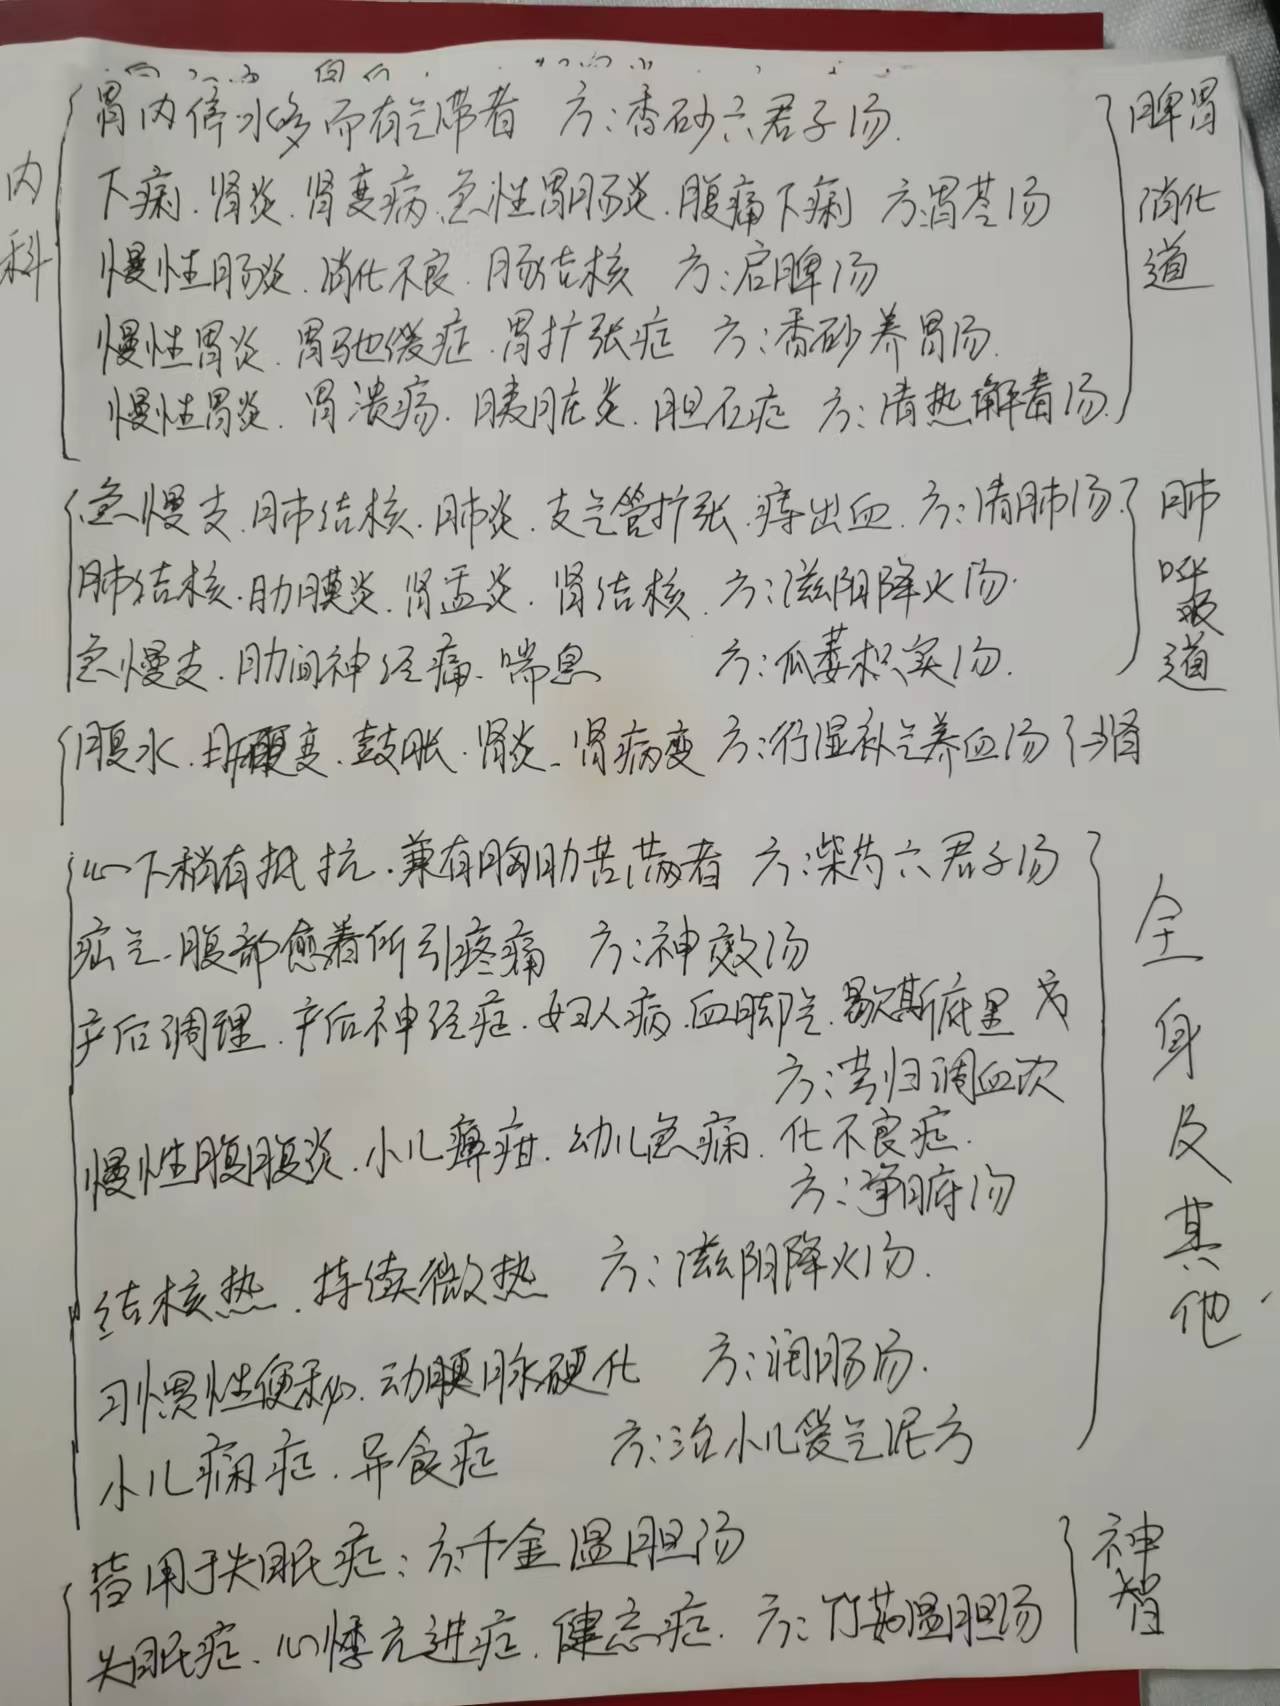 内科
胃内停水多而有气滞者 方:香砂六君子汤.
脾胃
消化
道
下痢.肾炎.肾变病.急性胃肠炎.腹痛下痢 方:胃苓汤
慢性肠炎.消化不良.肠结核 方:启脾汤
慢性胃炎.胃弛缓症.胃扩张症 方:香砂养胃汤.
慢性胃炎.胃溃疡.胰脏炎.胆石症 方:清热解毒汤.
急慢支.肺结核.肺炎.支气管扩张.痔出血.方:清肺汤.
肺
呼吸
道
肺结核.肋膜炎.肾盂炎.肾结核.方:滋阴降火汤.
急慢支.肋间神经痛.喘息 方:瓜蒌枳实汤.
腹水.肝硬变.鼓胀.肾炎.肾病变 方:行湿补气养血汤
肾
心下稍有抵抗.兼有胸肋苦满者 方:柴芍六君子汤
全身及其他
疝气.腹部愈着所引疼痛 方:神效汤
产后调理.产后神经症.妇人病.血脚气.歇斯底里 方
方:芎归调血饮
慢性腹膜炎.小儿脾疳.幼儿急痫.化不良症.
方:净腑汤
结核热.持续微热 方:滋阴降火汤.
习惯性便秘.动脉硬化 方:润肠汤.
小儿痫症.异食症 方:治小儿爱吃泥方
皆用于失眠症:方:千金温胆汤
神智
失眠症.心悸亢进症.健忘症.方:竹茹温胆汤